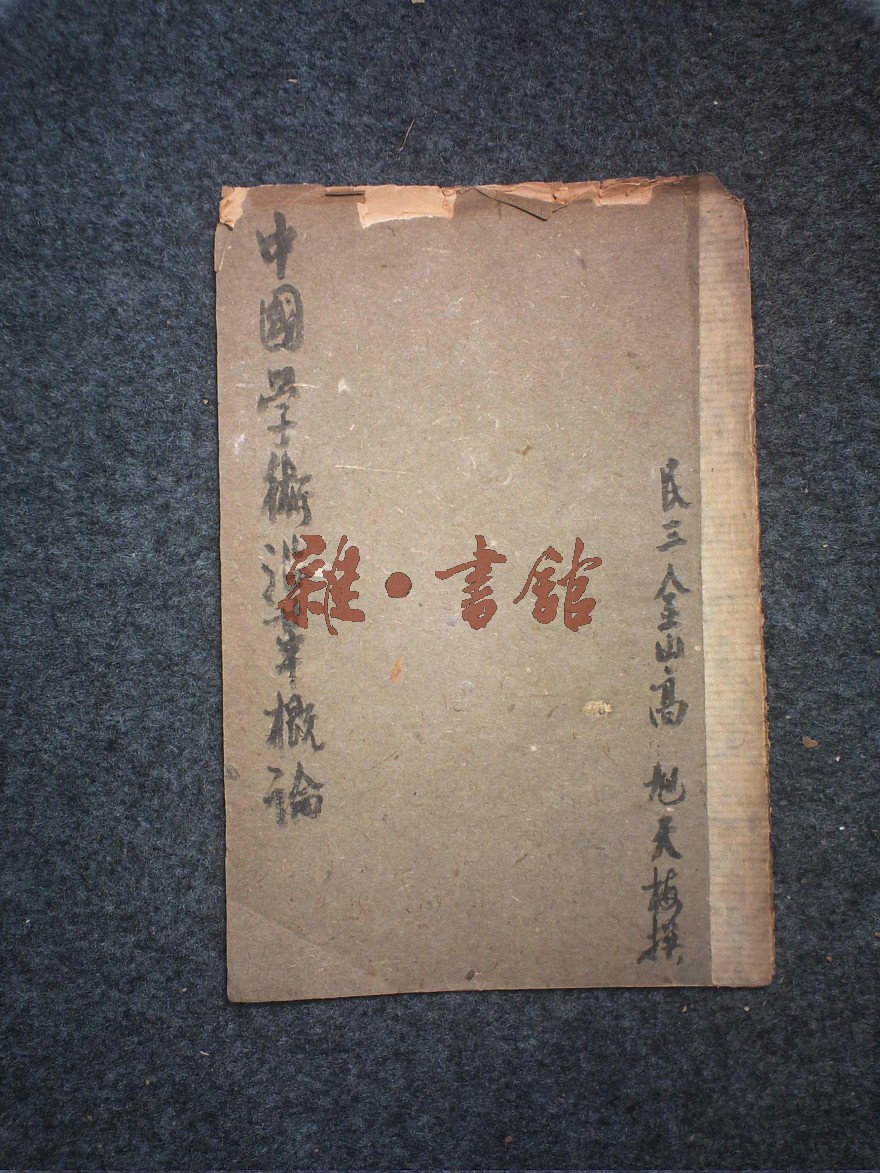 民三金山高旭天梅撰
雜·書館
中國学術沿革概論